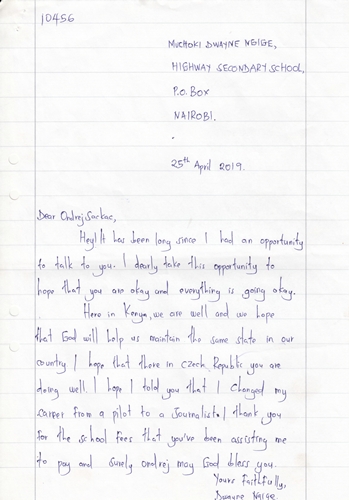 10456
MUCHOKI DWAYNE NGIGE,
HIGHWAY SECONDARY SCHOOL,
P.O. BOX
NAIROBI.
25th April 2019.
Dear Ondrej Sackac,
Hey! It has been long since I had an opportunity
to talk to you. I dearly take this opportunity to
hope that you are okay and everything is going okay.
Here in Kenya, we are well and we hope
that God will help us maintain the same state in our
country I hope that there in Czech Republic you are
doing well. I hope I told you that I changed my
career from a pilot to a Journalist I thank you
for the school fees that you've been assisting me
to pay and surely ondrej may God bless you.
Yours Faithfully,
Dwayne NGIGE